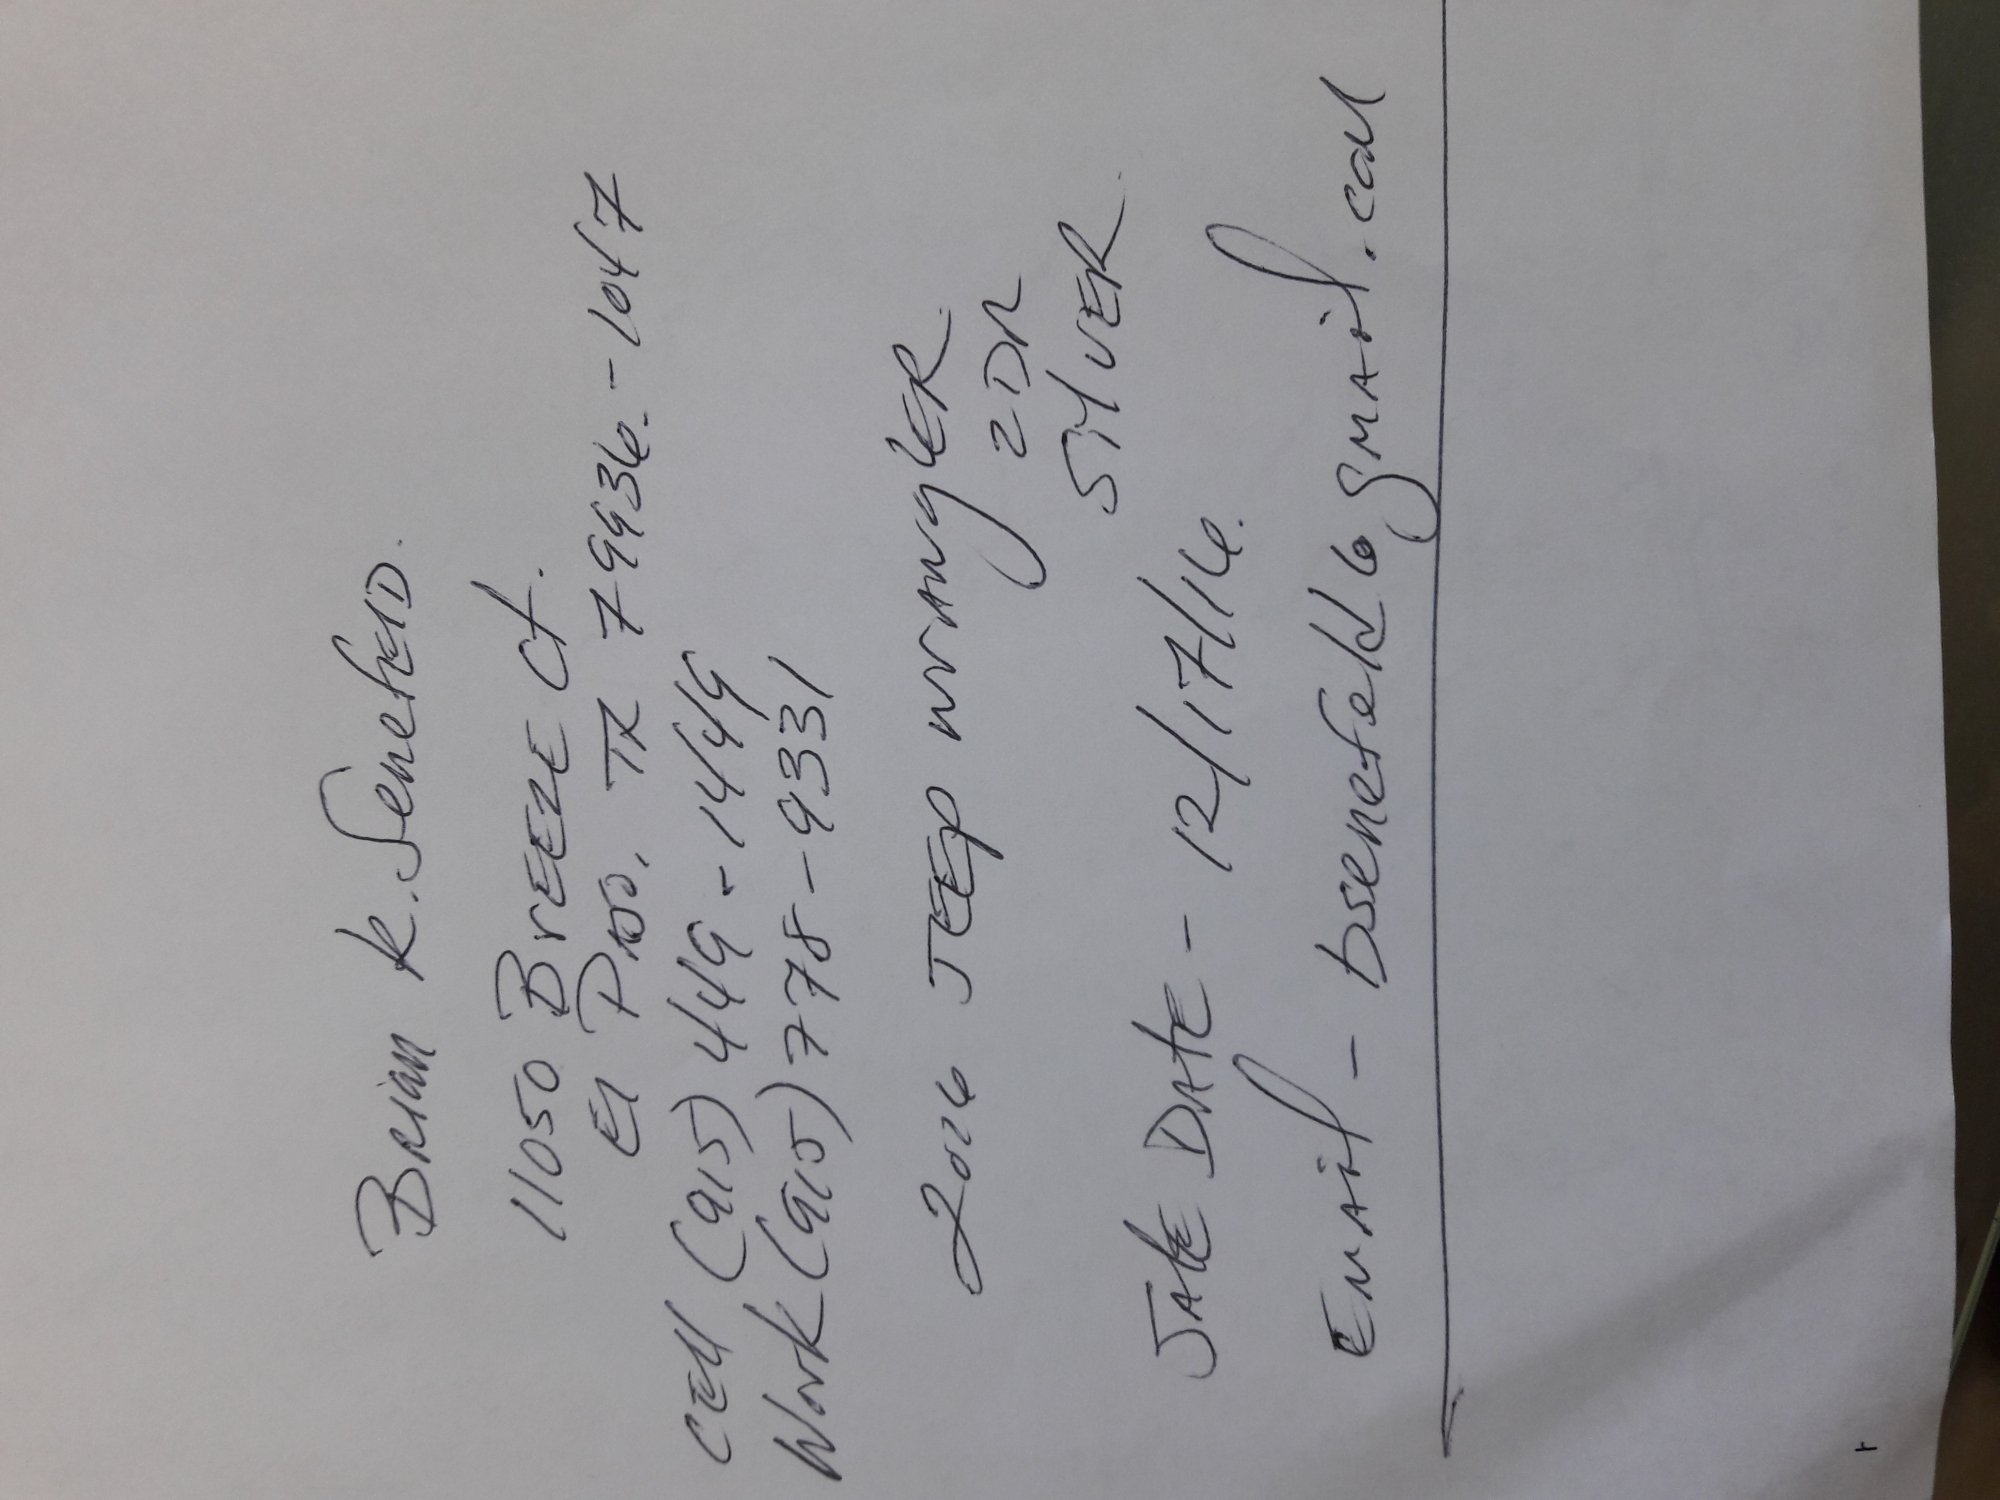 Brian K. Senefeld.
11050 BrEEZE Ct.
El Paso, TX 79936-1047
CEll (915) 449-1449
Work (915) 778-9331
2016 JEEp wrAnglER
2DR
SilVER
SAlE DAtE - 12/17/16.
EmAil - bsenefeld6gmail.com